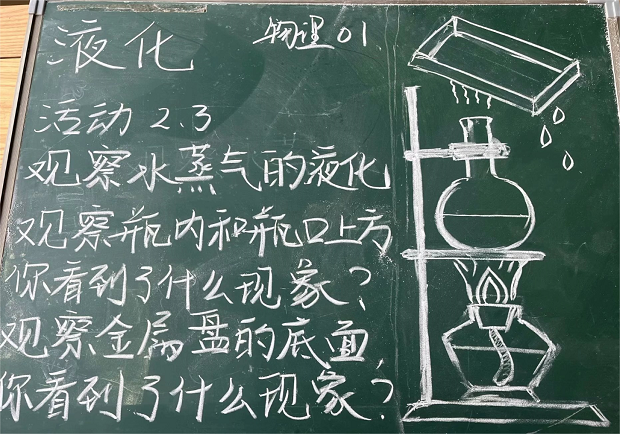 液化
物理01
活动2.3
观察水蒸气的液化
观察瓶内和瓶口上方
你看到了什么现象？
观察金属盘的底面，
你看到了什么现象？